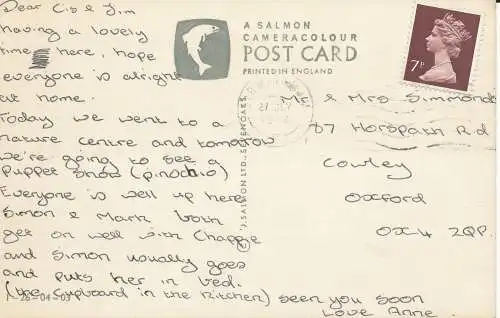 Dear Cis & Jim
having a lovely
time here, hope
everyone is alright
at home.
Today we went to a
nature centre and tomorrow
we're going to see a
Puppet Show (pinochio)
Everyone is well up here
Simon & Mark both
get on well with Chappie
and Simon usually goes
and puts her in bed.
(the cupboard in the kitchen) seen you soon
Love Anne.
A SALMON
CAMERACOLOUR
POST CARD
PRINTED IN ENGLAND
7P
Mr & Mrs Simmonds
87 Horspath Rd
Cowley
Oxford
OX4 2QP.
© J. SALMON LTD., SEVENOAKS
26-04-03